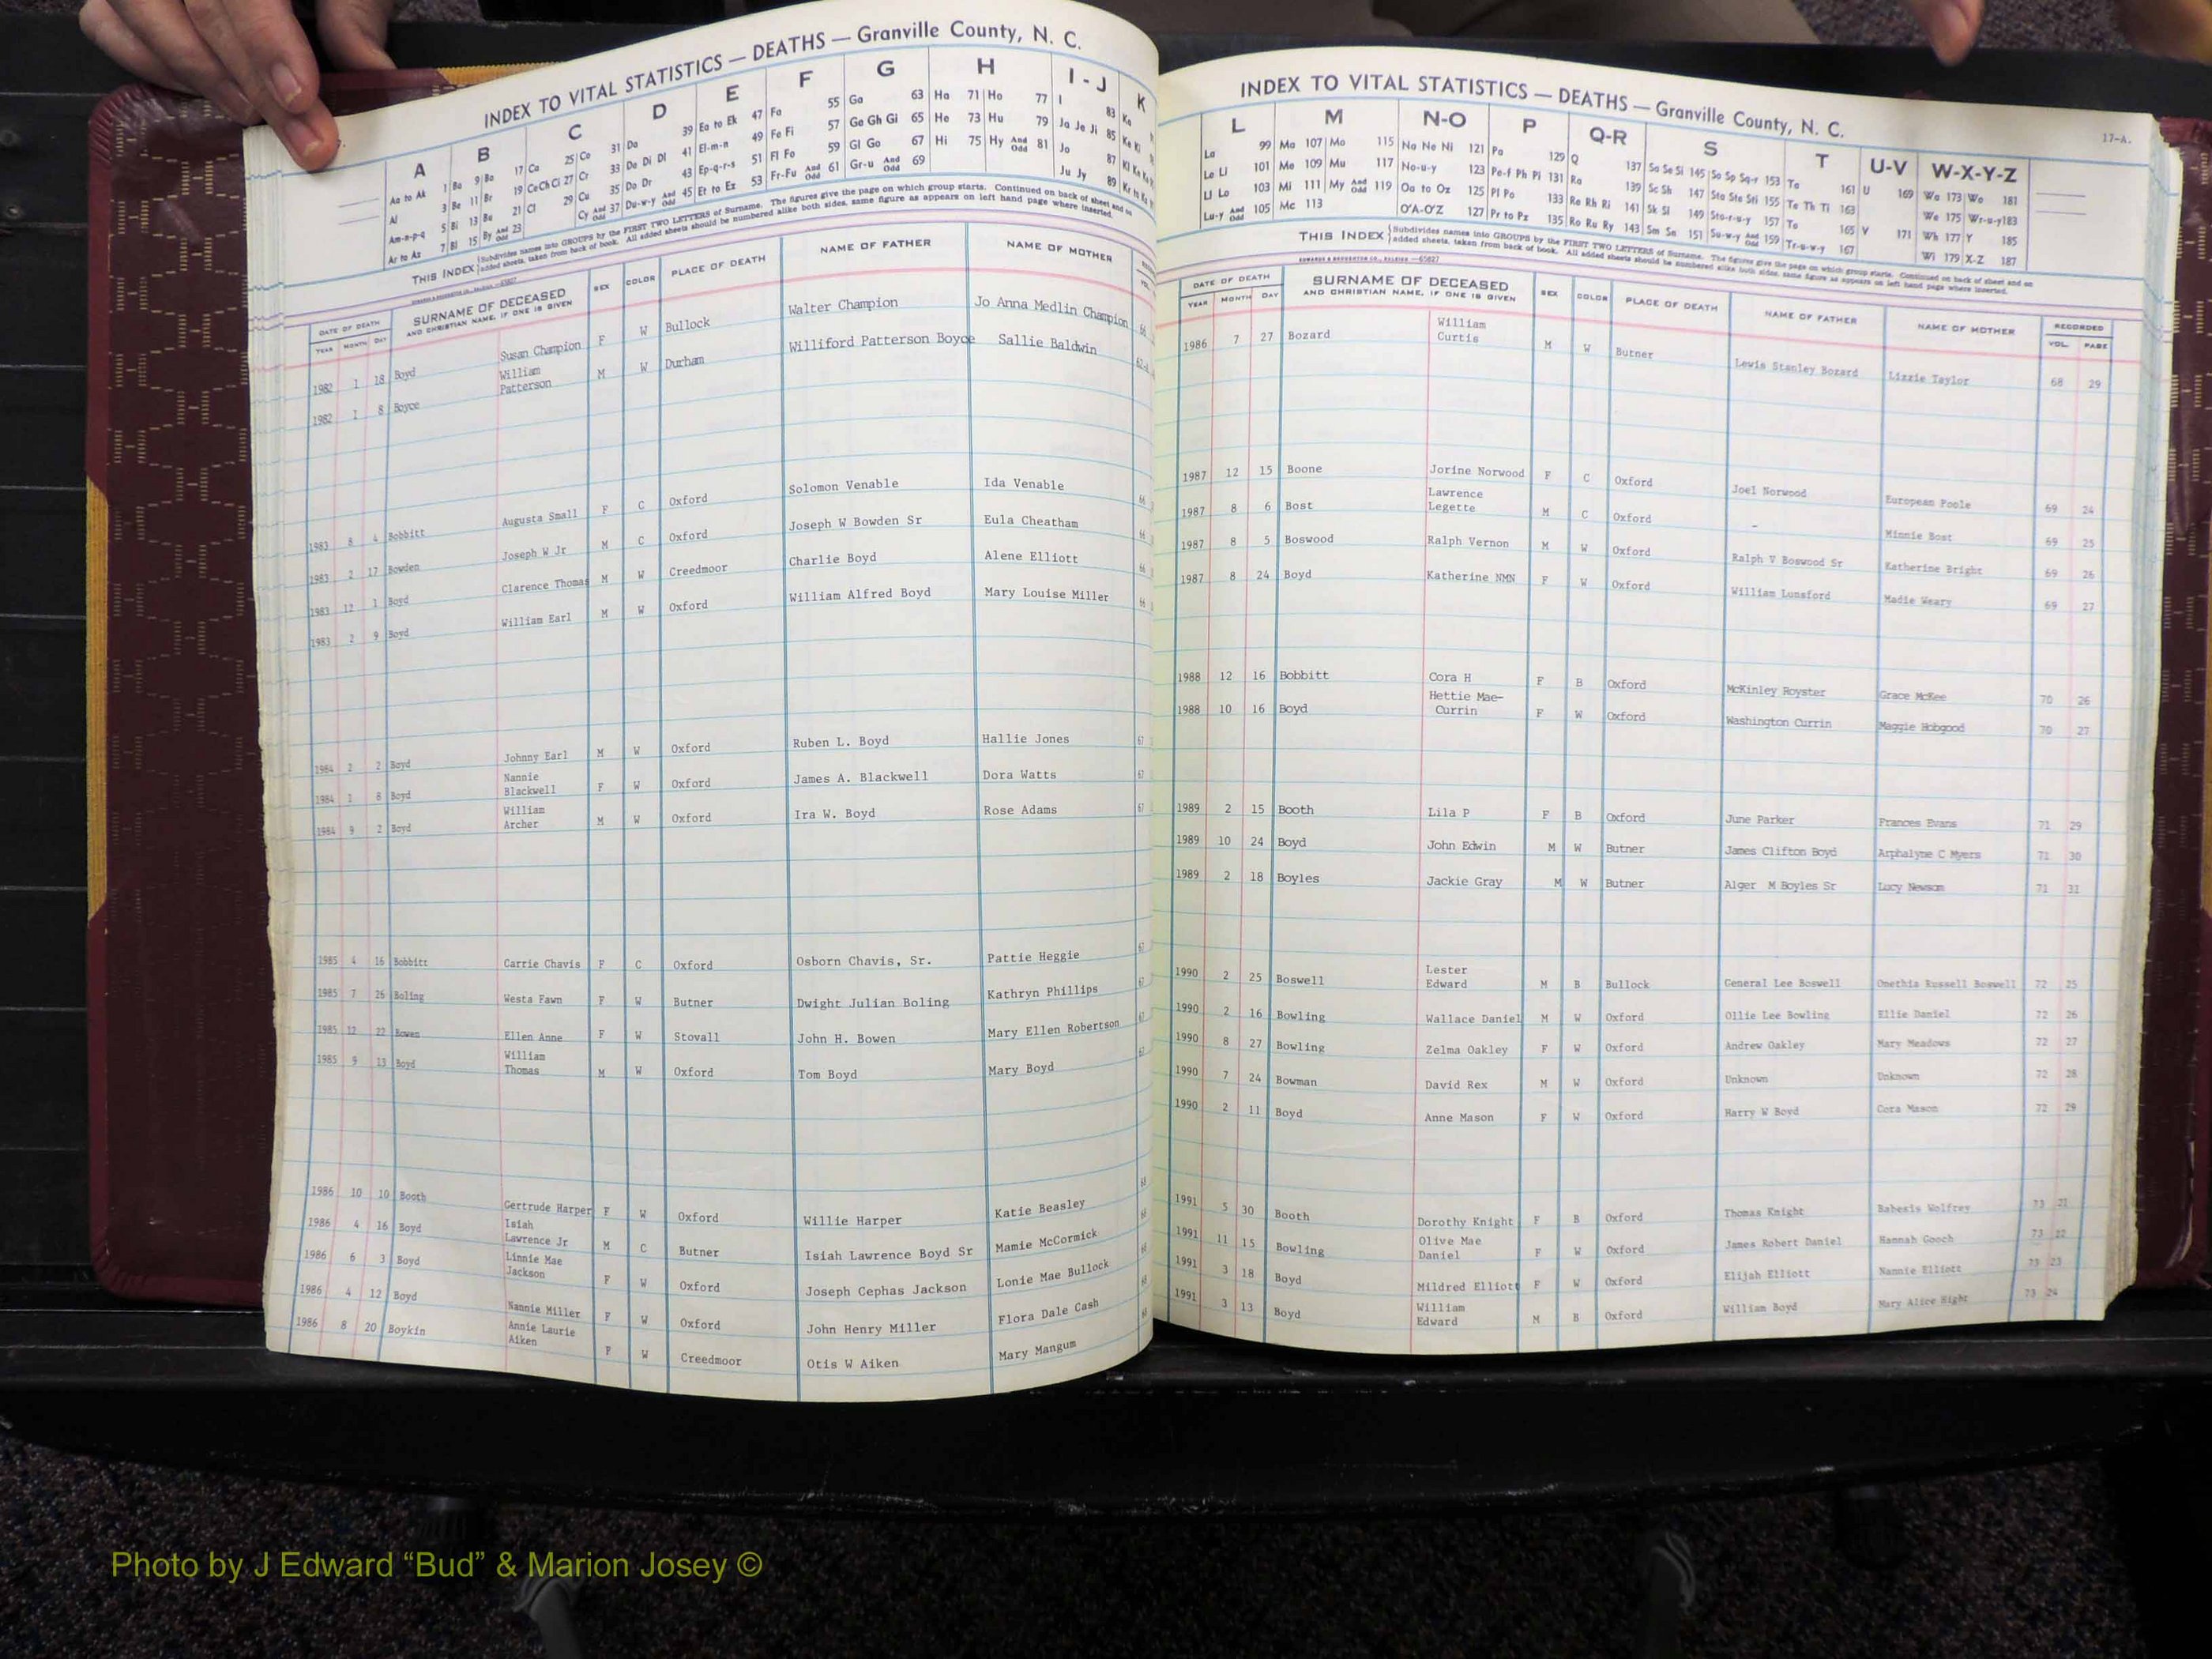 INDEX TO VITAL STATISTICS — DEATHS — Granville County, N. C.
A B C D E F G H I - J K
Aa to Ak 1 Ba 9 Bo 17 Ca 25 Co 31 Da 39 Ea to Ek 47 Fa 55 Ga 63 Ha 71 Ho 77 I 83 Ka
Al 3 Be 11 Br 19 Ce Ch Ci 27 Cr 33 De Di Dl 41 El-m-n 49 Fe Fi 57 Ge Gh Gi 65 He 73 Hu 79 Ja Je Ji 85 Ke Ki
Am-n-p-q 5 Bi 13 Bu 21 Cl 29 Cu 35 Do Dr 43 Ep-q-r-s 51 Fl Fo 59 Gl Go 67 Hi 75 Hy And Odd 81 Jo 87
Ar to Az 7 Bl 15 By And Odd 23 Cy And Odd 37 Du-w-y And Odd 45 Et to Ez 53 Fr-Fu And Odd 61 Gr-u And Odd 69 Ju Jy 89
THIS INDEX Subdivides names into GROUPS by the FIRST TWO LETTERS of Surname. The figures give the page on which group starts. Continued on back of sheet and on
added sheets, taken from back of book. All added sheets should be numbered alike both sides, same figure as appears on left hand page where inserted.
DATE OF DEATH SURNAME OF DECEASED SEX COLOR PLACE OF DEATH NAME OF FATHER NAME OF MOTHER
YEAR MONTH DAY AND CHRISTIAN NAME, IF ONE IS GIVEN
1982 1 18 Boyd Susan Champion F W Bullock Walter Champion Jo Anna Medlin Champion 66
1982 1 8 Boyce William Patterson M W Durham Williford Patterson Boyce Sallie Baldwin
1983 8 4 Bobbitt Augusta Small F C Oxford Solomon Venable Ida Venable 66
1983 2 17 Bowden Joseph W Jr M C Oxford Joseph W Bowden Sr Eula Cheatham 66
1983 12 1 Boyd Clarence Thomas M W Creedmoor Charlie Boyd Alene Elliott 66
1983 2 9 Boyd William Earl M W Oxford William Alfred Boyd Mary Louise Miller 66
1984 2 2 Boyd Johnny Earl M W Oxford Ruben L. Boyd Hallie Jones 67
1984 1 8 Boyd Nannie Blackwell F W Oxford James A. Blackwell Dora Watts 67
1984 9 2 Boyd William Archer M W Oxford Ira W. Boyd Rose Adams 67
1985 4 16 Bobbitt Carrie Chavis F C Oxford Osborn Chavis, Sr. Pattie Heggie 67
1985 7 26 Boling Westa Fawn F W Butner Dwight Julian Boling Kathryn Phillips 67
1985 12 22 Bowen Ellen Anne F W Stovall John H. Bowen Mary Ellen Robertson 67
1985 9 13 Boyd William Thomas M W Oxford Tom Boyd Mary Boyd 67
1986 10 10 Booth Gertrude Harper F W Oxford Willie Harper Katie Beasley 68
1986 4 16 Boyd Isiah Lawrence Jr M C Butner Isiah Lawrence Boyd Sr Mamie McCormick 68
1986 6 3 Boyd Linnie Mae Jackson F W Oxford Joseph Cephas Jackson Lonie Mae Bullock 68
1986 4 12 Boyd Nannie Miller F W Oxford John Henry Miller Flora Dale Cash 68
1986 8 20 Boykin Annie Laurie Aiken F W Creedmoor Otis W Aiken Mary Mangum 68
INDEX TO VITAL STATISTICS — DEATHS — Granville County, N. C.
17-A.
L M N-O P Q-R S T U-V W-X-Y-Z
La 99 Ma 107 Mo 115 Na Ne Ni 121 Pa 129 Q 137 Sa Se Si 145 So Sp Sq-r 153 Ta 161 U 169 Wa 173 Wo 181
Le Li 101 Me 109 Mu 117 No-u-y 123 Pe-f Ph Pi 131 Ra 139 Sc Sh 147 Sta Ste Sti 155 Te Th Ti 163 We 175 Wr-u-y 183
Ll Lo 103 Mi 111 My And Odd 119 Oa to Oz 125 Pl Po 133 Re Rh Ri 141 Sk Sl 149 Sto-r-u-y 157 To 165 V 171 Wh 177 Y 185
Lu-y And Odd 105 Mc 113 O'A-O'Z 127 Pr to Pz 135 Ro Ru Ry 143 Sm Sn 151 Su-w-y And Odd 159 Tr-u-w-y 167 Wi 179 X-Z 187
THIS INDEX Subdivides names into GROUPS by the FIRST TWO LETTERS of Surname. The figures give the page on which group starts. Continued on back of sheet and on
added sheets, taken from back of book. All added sheets should be numbered alike both sides, same figure as appears on left hand page where inserted.
DATE OF DEATH SURNAME OF DECEASED SEX COLOR PLACE OF DEATH NAME OF FATHER NAME OF MOTHER RECORDED
YEAR MONTH DAY AND CHRISTIAN NAME, IF ONE IS GIVEN VOL. PAGE
1986 7 27 Bozard William Curtis M W Butner Lewis Stanley Bozard Lizzie Taylor 68 29
1987 12 15 Boone Jorine Norwood F C Oxford Joel Norwood European Poole 69 24
1987 8 6 Bost Lawrence Legette M C Oxford - Minnie Bost 69 25
1987 8 5 Boswood Ralph Vernon M W Oxford Ralph V Boswood Sr Katherine Bright 69 26
1987 8 24 Boyd Katherine NMN F W Oxford William Lunsford Madie Weary 69 27
1988 12 16 Bobbitt Cora H F B Oxford McKinley Royster Grace McKee 70 26
1988 10 16 Boyd Hettie Mae- Currin F W Oxford Washington Currin Maggie Hobgood 70 27
1989 2 15 Booth Lila P F B Oxford June Parker Frances Evans 71 29
1989 10 24 Boyd John Edwin M W Butner James Clifton Boyd Arphalyne C Myers 71 30
1989 2 18 Boyles Jackie Gray M W Butner Alger M Boyles Sr Lucy Newsom 71 31
1990 2 25 Boswell Lester Edward M B Bullock General Lee Boswell Omethia Russell Boswell 72 25
1990 2 16 Bowling Wallace Daniel M W Oxford Ollie Lee Bowling Ellie Daniel 72 26
1990 8 27 Bowling Zelma Oakley F W Oxford Andrew Oakley Mary Meadows 72 27
1990 7 24 Bowman David Rex M W Oxford Unknown Unknown 72 28
1990 2 11 Boyd Anne Mason F W Oxford Harry W Boyd Cora Mason 72 29
1991 5 30 Booth Dorothy Knight F B Oxford Thomas Knight Babesis Wolfrey 73 21
1991 11 15 Bowling Olive Mae Daniel F W Oxford James Robert Daniel Hannah Gooch 73 22
1991 3 18 Boyd Mildred Elliott F W Oxford Elijah Elliott Nannie Elliott 73 23
1991 3 13 Boyd William Edward M B Oxford William Boyd Mary Alice Hight 73 24
Photo by J Edward “Bud” & Marion Josey ©